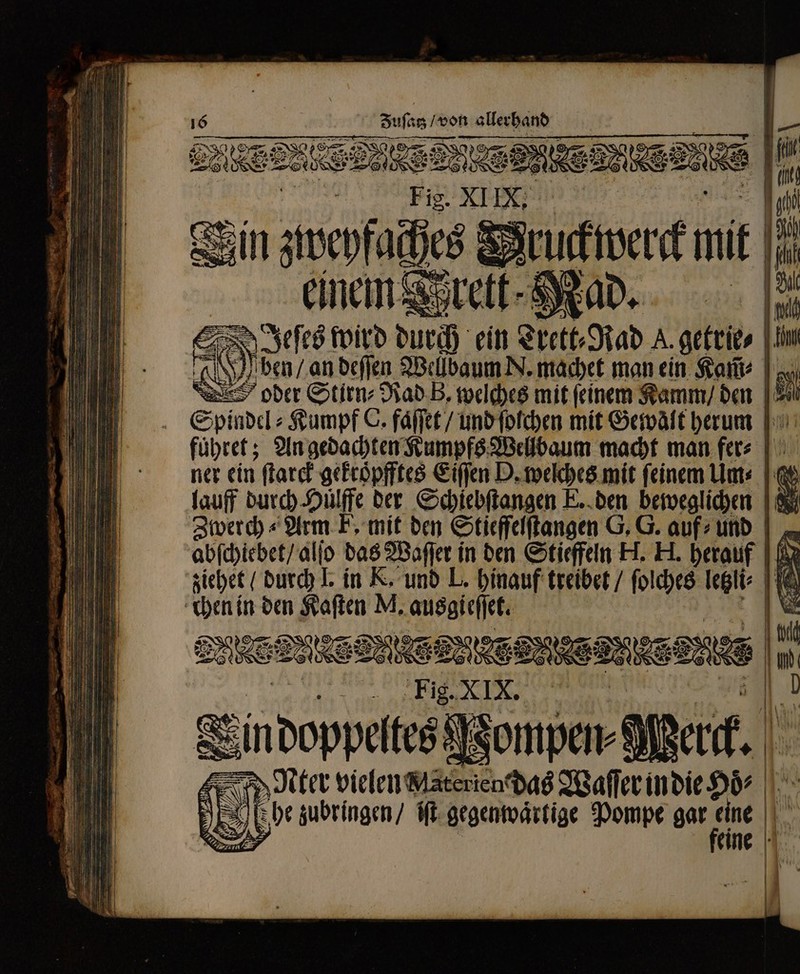 16 Zusatz / von allerhand
Fig. XIIX,
Ein zweyfaches Druckwerck mit
einem Trett-Rad.
DIeses wird durch ein Trett-Rad A. getrie-
ben / an dessen Wellbaum N. machet man ein Kam̃-
oder Stirn-Rad B. welches mit seinem Kamm / den
Spindel-Kumpf C. fässet / und solchen mit Gewålt herum
führet; An gedachten Kumpfs Wellbaum macht man fer-
ner ein starck gekröpfftes Eissen D. welches mit seinem Um-
lauff durch Hülffe der Schiebstangen E. den beweglichen
Zwerch-Arm F. mit den Stieffelstangen G. G. auf- und
abschiebet / also das Wasser in den Stieffeln H. H. herauf
ziehet ( durch I. in K. und L. hinauf treibet / solches letzli-
chen in den Kasten M. ausgiesset.
Fig. XIX.
Ein doppeltes Pompen-Werck.
UNter vielen Materien das Wasser in die Hö-
he zubringen / ist gegenwärtige Pompe gar eine
feine